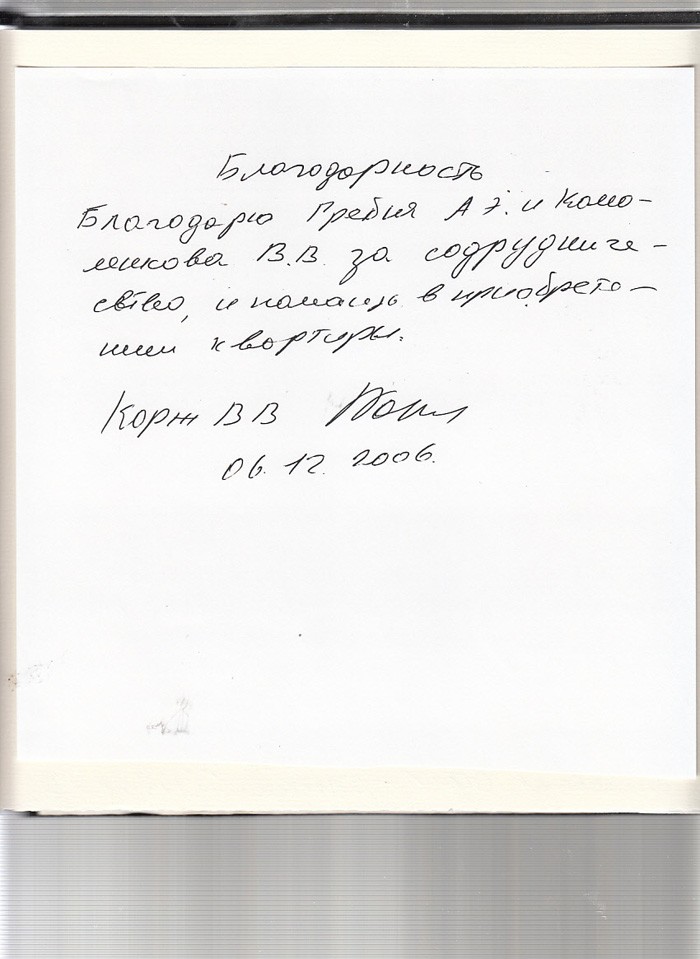 Благодарность
Благодарю Гребня А.Э. и
В.В. за содрудниче-
ство, и помащь в приобрете-
нии квартиры.
Корж В В
06.12.2006.